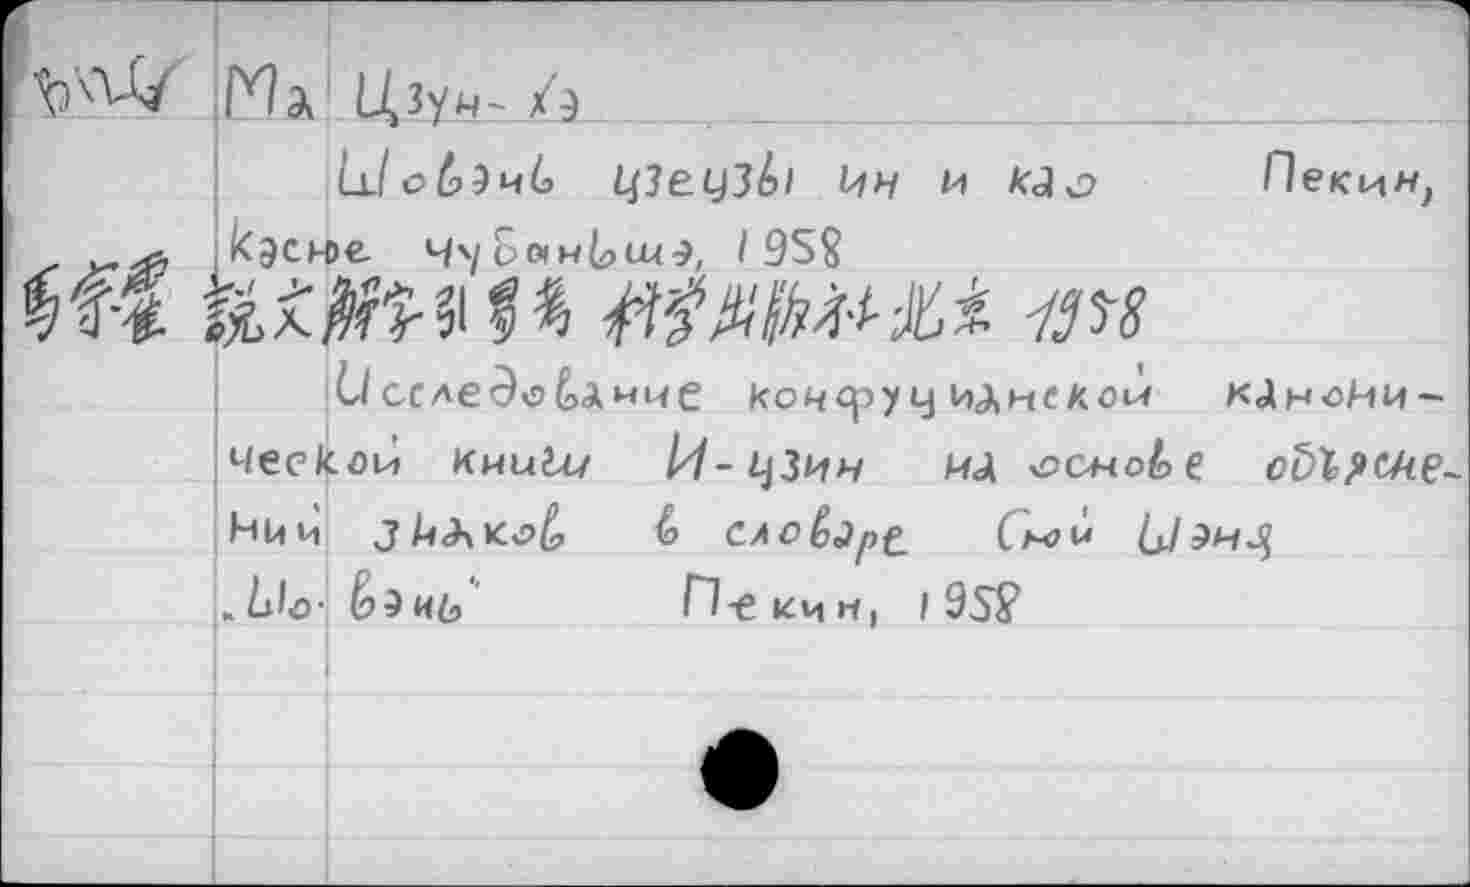 Ма Цзун-хэ
Шовэнь цзецзы ин и као Пекин,
Кэсюе чубаньшэ, 1958
馬宗霍 說文解字引易考 科學出版社北京 1958
Исследование конфуцианской канони-
ческой книги И-цзин на основе объясне-
ний знаков в словаре Сюй Шэня
„Шо-вэнь" Пекин, 1958